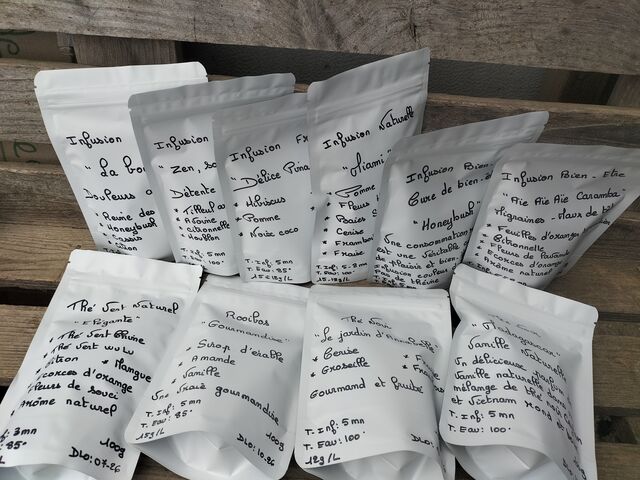 Infusion
"La
Douleurs
* Reine des
* Honeybush
* Cassis
* Citron
Infusion
"Zen,
Détente
* Tilleul
* Avoine
* Citronnelle
* Houblon
T. Inf: 5mn
T. Eau: 85°
Infusion
"Délice
* Hibiscus
* Pomme
* Noix coco
T. Inf: 5mn
T. Eau: 85°
Infusion Naturelle
"Miami"
Pomme
Fleurs
Baies
Cerise
Framboise
* Fraise
T. Inf: 5-8mn
Infusion Bien-
Cure de bien-
"Honeybush"
Une consommation
de une véritable
de plaisir et bien
Infusion couleur
pas de théine
Infusion Bien-Etre
"Aïe Aïe Aïe Caramba"
Migraines - Maux de
* Feuille d'oranger
* Citronnelle
* Fleurs de
* Ecorces d'orange
* Arôme naturel
Thé Vert Naturel
"Elégante"
* Thé Vert Chine
* Thé Vert
Citron * Mangue
Ecorces d'orange
Fleurs de souci
Arôme naturel
Inf: 3mn
85° 100g
DLO:07-26
Rooibos
"Gourmandise"
Sirop d'érable
* Amande
* Vanille
Une vraie gourmandise
T. Inf: 5mn
T. Eau: 85°
15g/L 100g
DLO:10-26
Thé Noir
"Le jardin
* Cerise
* Groseille
Gourmand et fruité
T. Inf: 5mn
T. Eau: 100°
12g/L DLO:
"Madagascar"
Vanille Naturelle
Un délicieux
Vanille naturelle dans un
mélange de thé
et Vietnam
T. Inf: 5mn
T. Eau: 100°